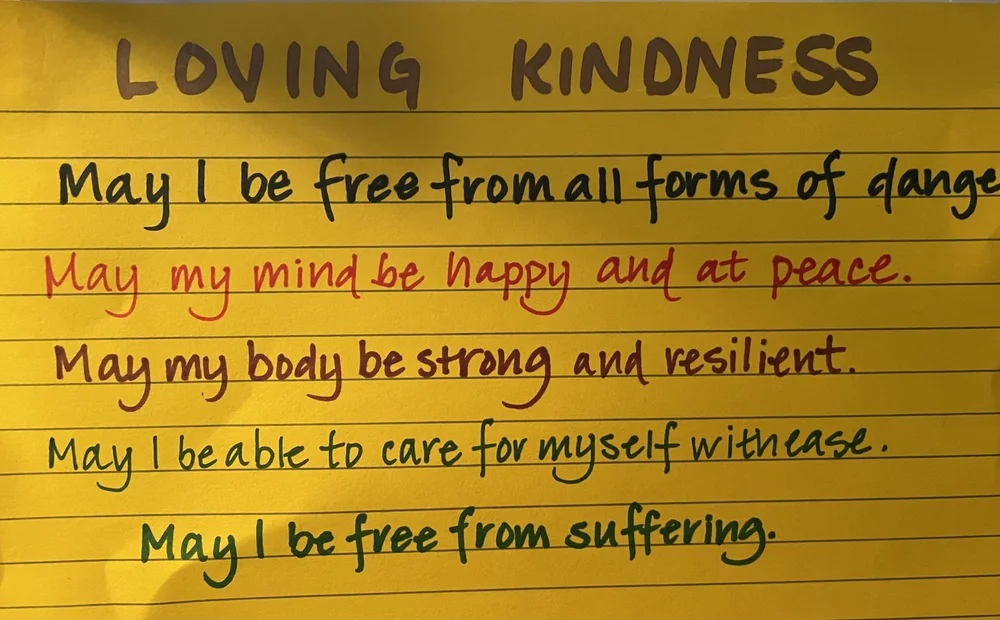 LOVING KINDNESS
May I be free from all forms of dange
May my mind be happy and at peace.
May my body be strong and resilient.
May I be able to care for myself with ease.
May I be free from suffering.